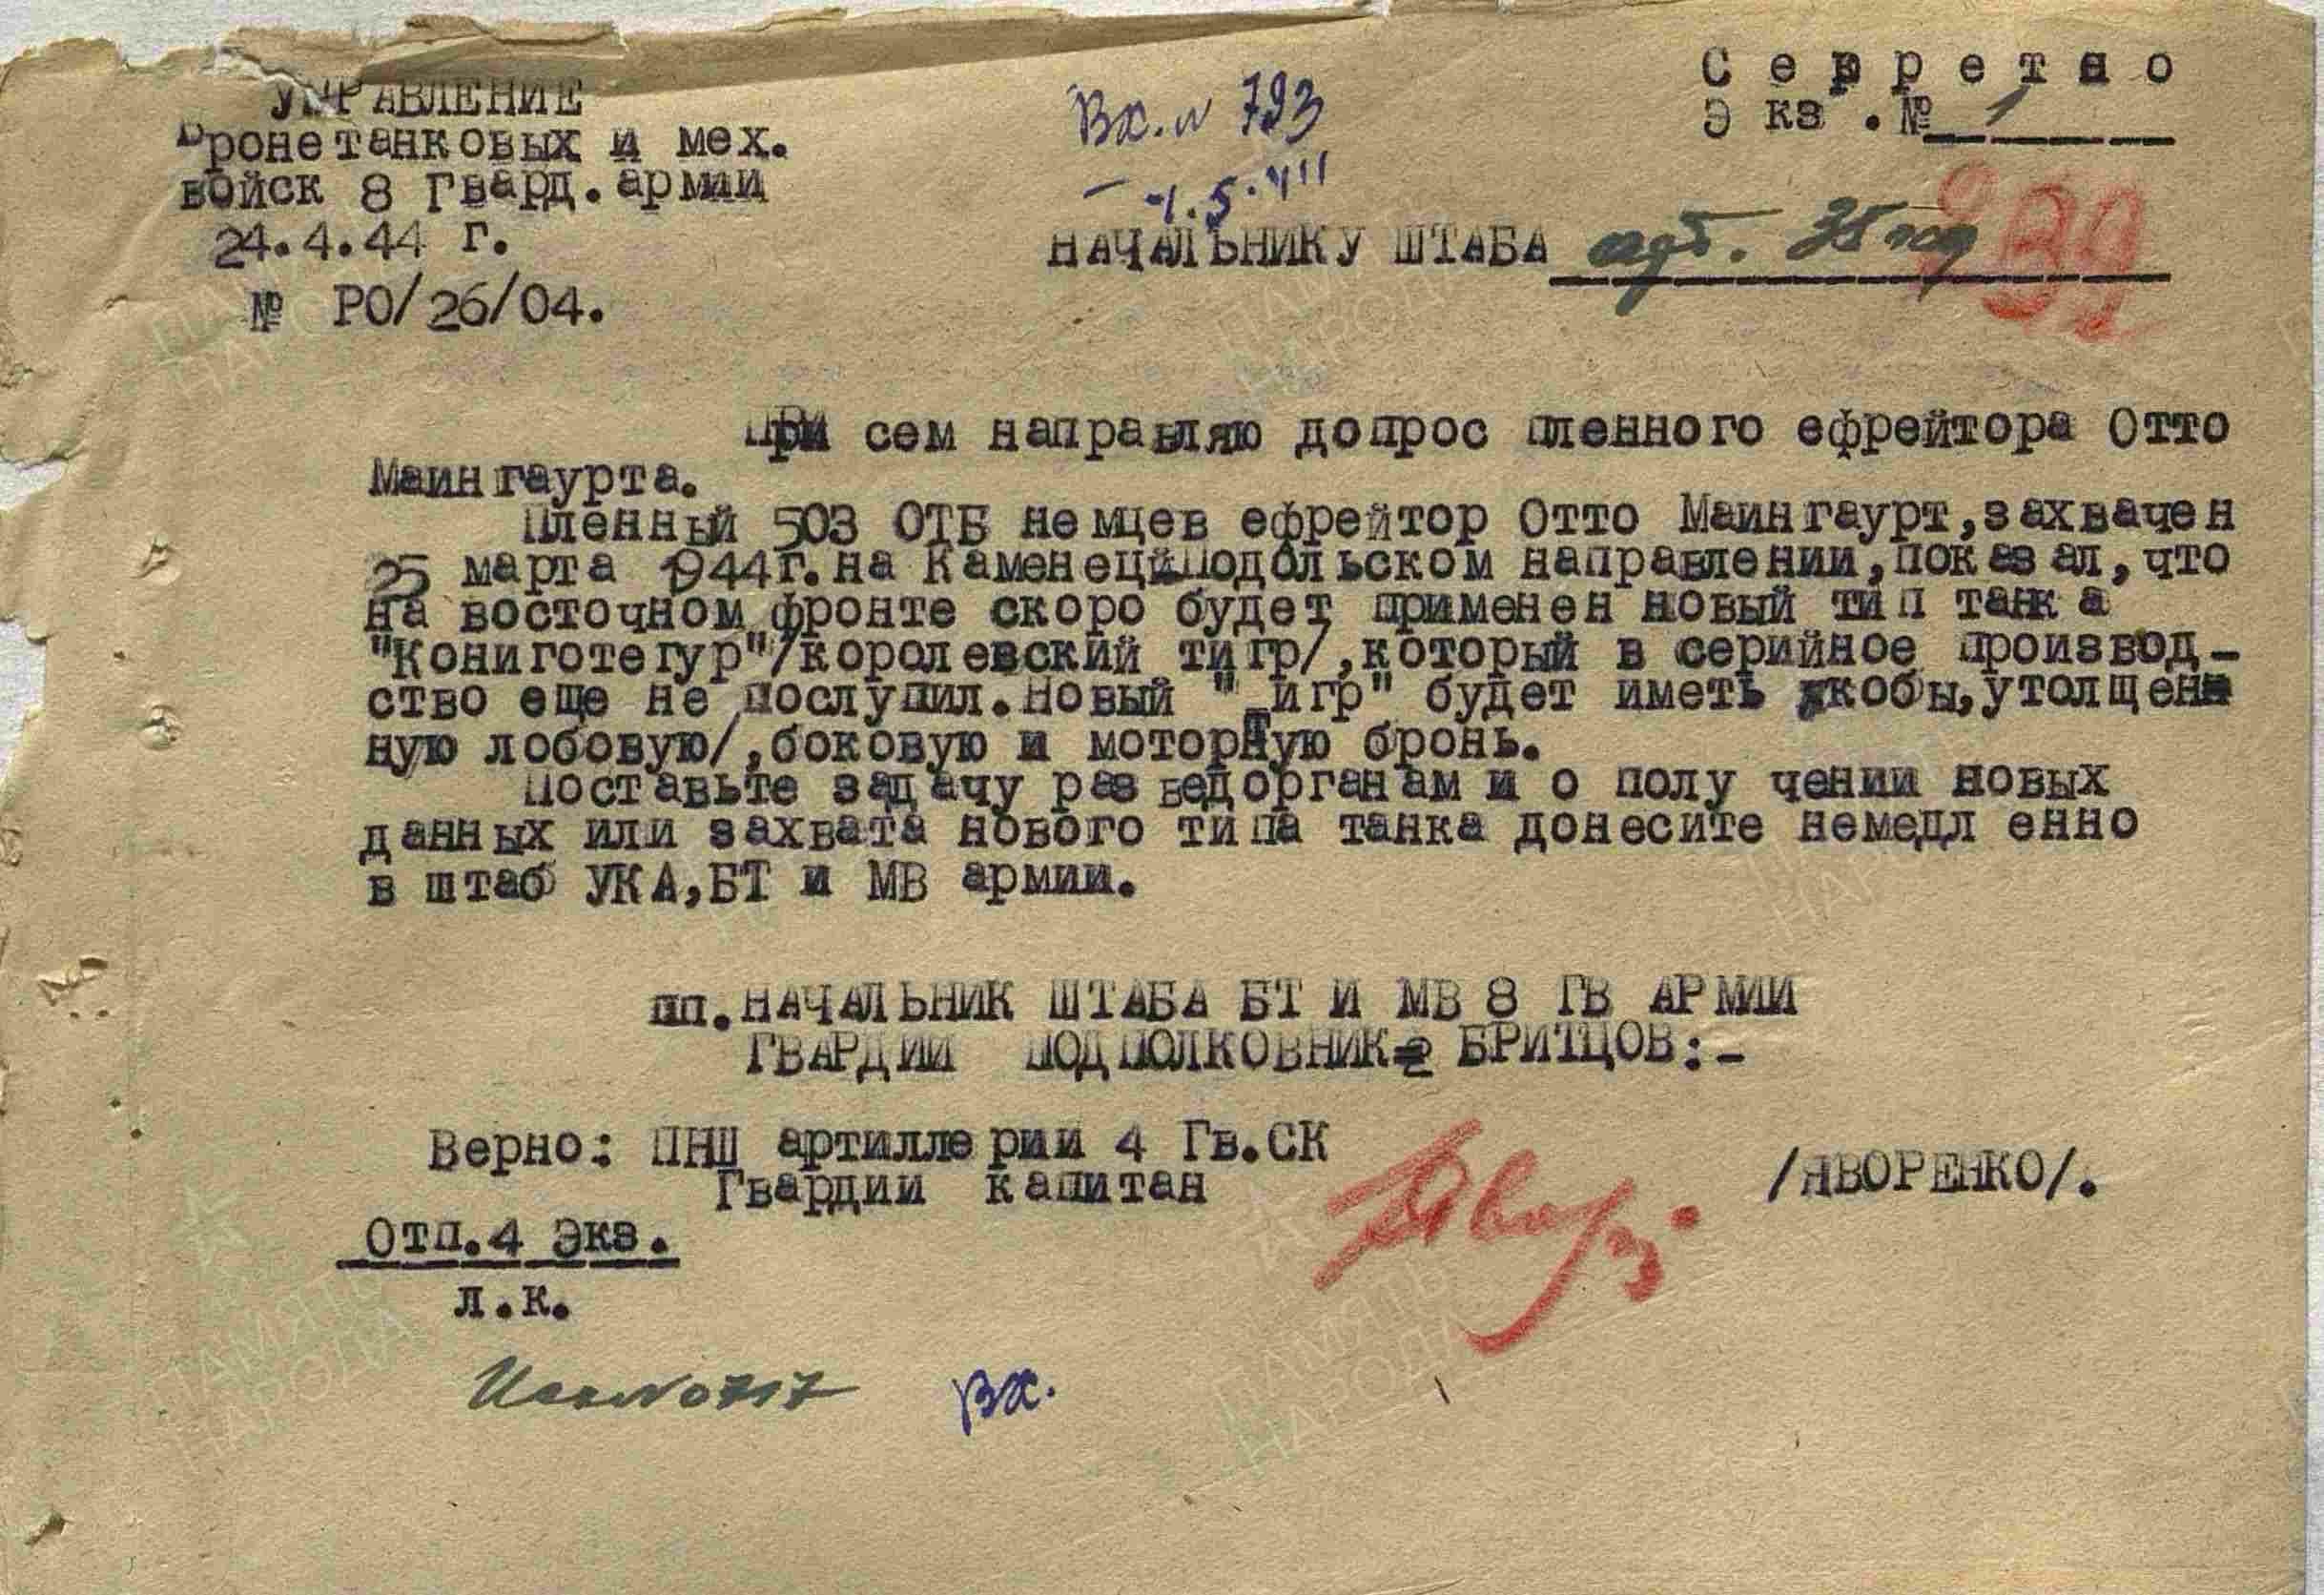 Секретно
Экз.№ 1
УПРАВЛЕНИЕ
Бронетанковых и мех.
войск 8 Гвард.армии
24.4.44 г.
№ РО/26/04.
Вх.N 793
НАЧАЛЬНИКУ ШТАБА
При сем направляю допрос пленного ефрейтора Отто
Маингаурта.
Пленный 503 ОТБ немцев ефрейтор Отто Маингаурт,захвачен
25 марта 1944г.на Каменец-Подольском направлении,показал,что
на восточном фронте скоро будет применен новый тип танка
"Кониготегур"/королевский тигр/,который в серийное производ-
ство еще не послупил.Новый "Тигр" будет иметь якобы,утолщен-
ную лобовую/,боковую и моторную бронь.
Поставьте задачу разведорганам и о получении новых
данных или захвата нового типа танка донесите немедленно
в штаб УКА,БТ и МВ армии.
пп.НАЧАЛЬНИК ШТАБА БТ И МВ 8 ГВ АРМИИ
ГВАРДИИ ПОДПОЛКОВНИК БРИТЦОВ:-
Верно: ПНШ артиллерии 4 Гв.СК
Гвардии капитан /ЯВОРЕНКО/.
Отп.4 Экз.
л.к.
Вх.
ПАМЯТЬ
НАРОДА